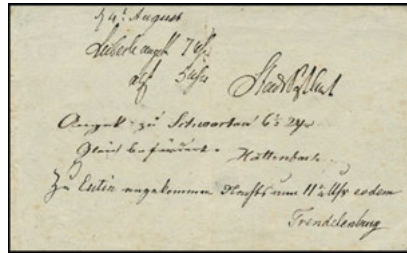 d 4t August
Lübeck angek 7 Uhr
abg 5 Uhr
Stadtpostamt
Angek. zu Schwartau 6 2
Gleich befördert. Hattenbach.
Zu Eutin angekommen Nachts um 11¼ Uhr eodem
Trendelenburg